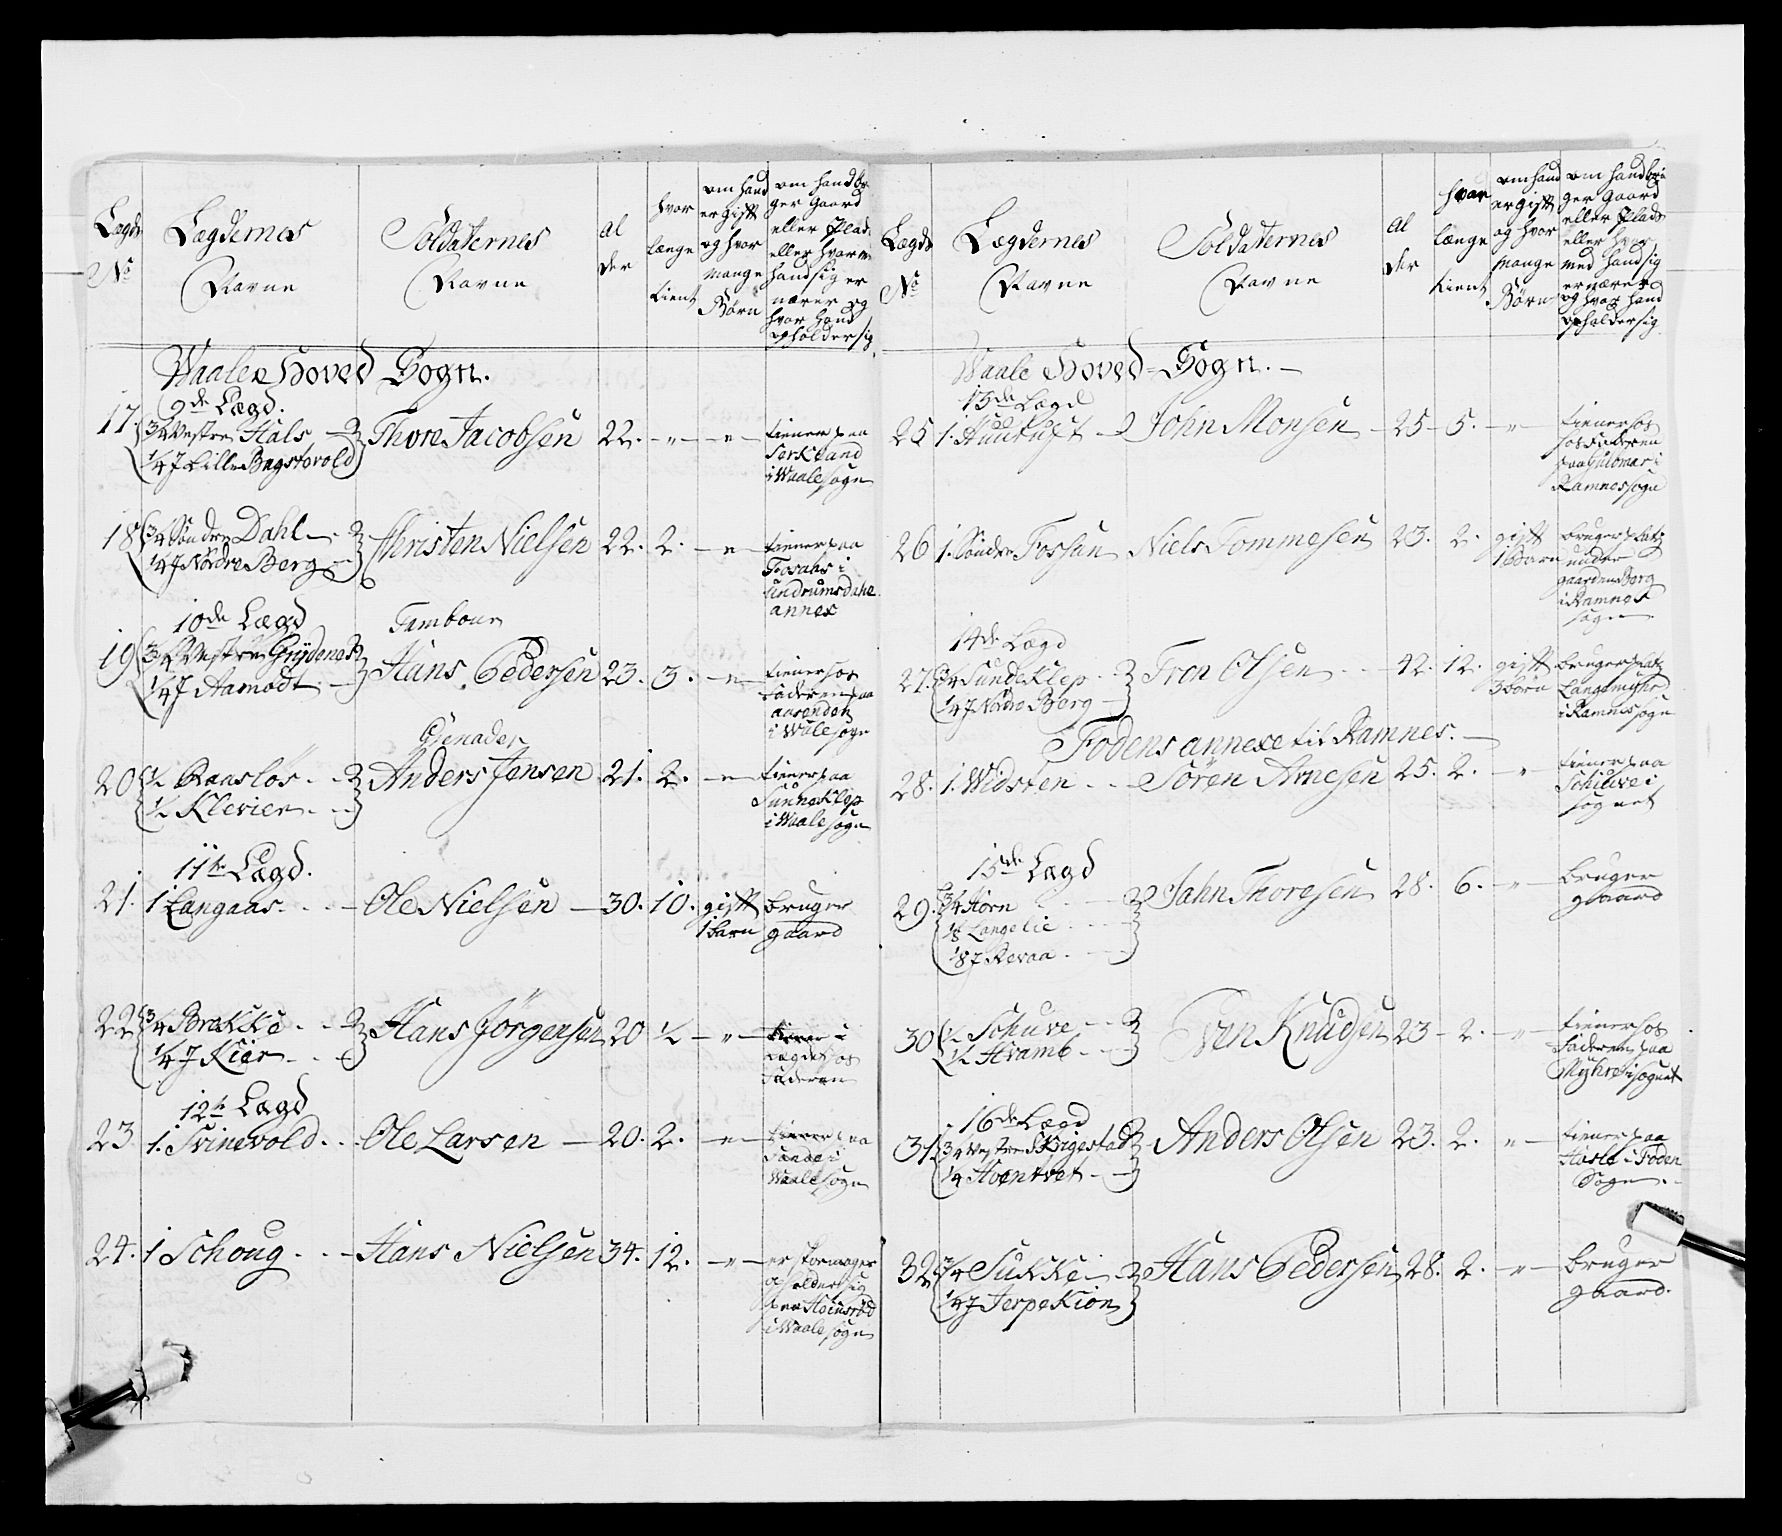 Lægds
No
Lægdernes
Navne
Soldaternes
Navne
al
der
hvor
længe
tient
om hand
er gift
og hvor
mange
Børn
om hand bru
ger gaard
eller Plads
eller hvor
hand sig er
nærer og
hvor hand
opholder sig
Waale Hoved Sogn.
9de Lægd.
17. 3/4 Vestre Hals
1/4 J Lille Bugstovold
Thore Jacobsen 22. - " - - " -
tiener paa
i Waale sogn
18 3/4 Søndre Dahl
1/4 J Nordre Berg
Christen Nielsen 22. 2. - " -
tiener paa
Fosaas i
Undrumsdahl
annex
10de Lægd
Tambour
19 3/4 Vestre Grydenes
1/4 J Aamodt
Hans Pedersen 23. 3. - " -
tiener hos
Faderen paa
aasenden
i Wale sogn
Grenader
20 1/2 Raasløs
1/2 Klevier
Anders Jensen 21. 2. - " -
tiener paa
Sunne Klep
i Waale sogn
11te Lægd.
21. 1 Langaas. Ole Nielsen 30. 10. gift
1 Barn
bruger
gaard
22 3/4 Brekke
1/4 J Kier
Hans Jørgensen 20 1/2 - " -
tiener i
Lægdet hos
Faderen
12te Lægd
23 1. Svinevold Ole Larsen 20. 2. - " -
tiener paa
Sande i
Waale sogn
24. 1 Schoug Hans Nielsen 34. 12. - " -
opholder sig
paa
i Waale sogn
Lægds
No
Lægdernes
Navne
Soldaternes
Navne
al
der
hvor
længe
tient
om hand
er gift
og hvor
mange
Børn
om hand bru
ger gaard
eller Plads
eller hvor
med hand sig
ernærer
og hvor hand
opholder sig
Waale Hoved-Sogn.
13de Lægd
25 1. John Monsen 25 5. - " -
tiener hos
Faderen
paa i
Ramnes sogn
26 1. Søndre Fossan Niels Tommesen 23. 2. gift
1 Barn
bruger platz
under
gaarden Berg
i Ramnes
sogn
14de Lægd
27. 3/4 Sunde Klep
1/4 J Nordre Berg
Tron Olsen 42. 12. gift
3 børn
bruger platz
Langemyhr
i Ramnes sogn
Fodens annexe til Ramnes.
28. 1. Widsten Søren Arnesen 25. 2. - " -
tiener paa
Schiuve i
sognet
15de Lægd
29. 3/4 Horn
1/8 Langelie
1/8 J Revaa
Jahn Thoresen 28. 6. - " -
bruger
gaard
30 1/2 Schuve
1/2 Hvamb
Sven Knudsen 23 2. - " -
tiener hos
Faderen paa
Myhre i sognet
16de Lægd
31. 3/4 Vestre Bigestad
1/4 Hventvet
Anders Olsen 23. 2. - " -
tiener paa
Hasle i Foden
Sogn.
32 3/4 Sukke
1/4 J Jerpekion
Hans Pedersen 28. 2. - " -
bruger
gaard.